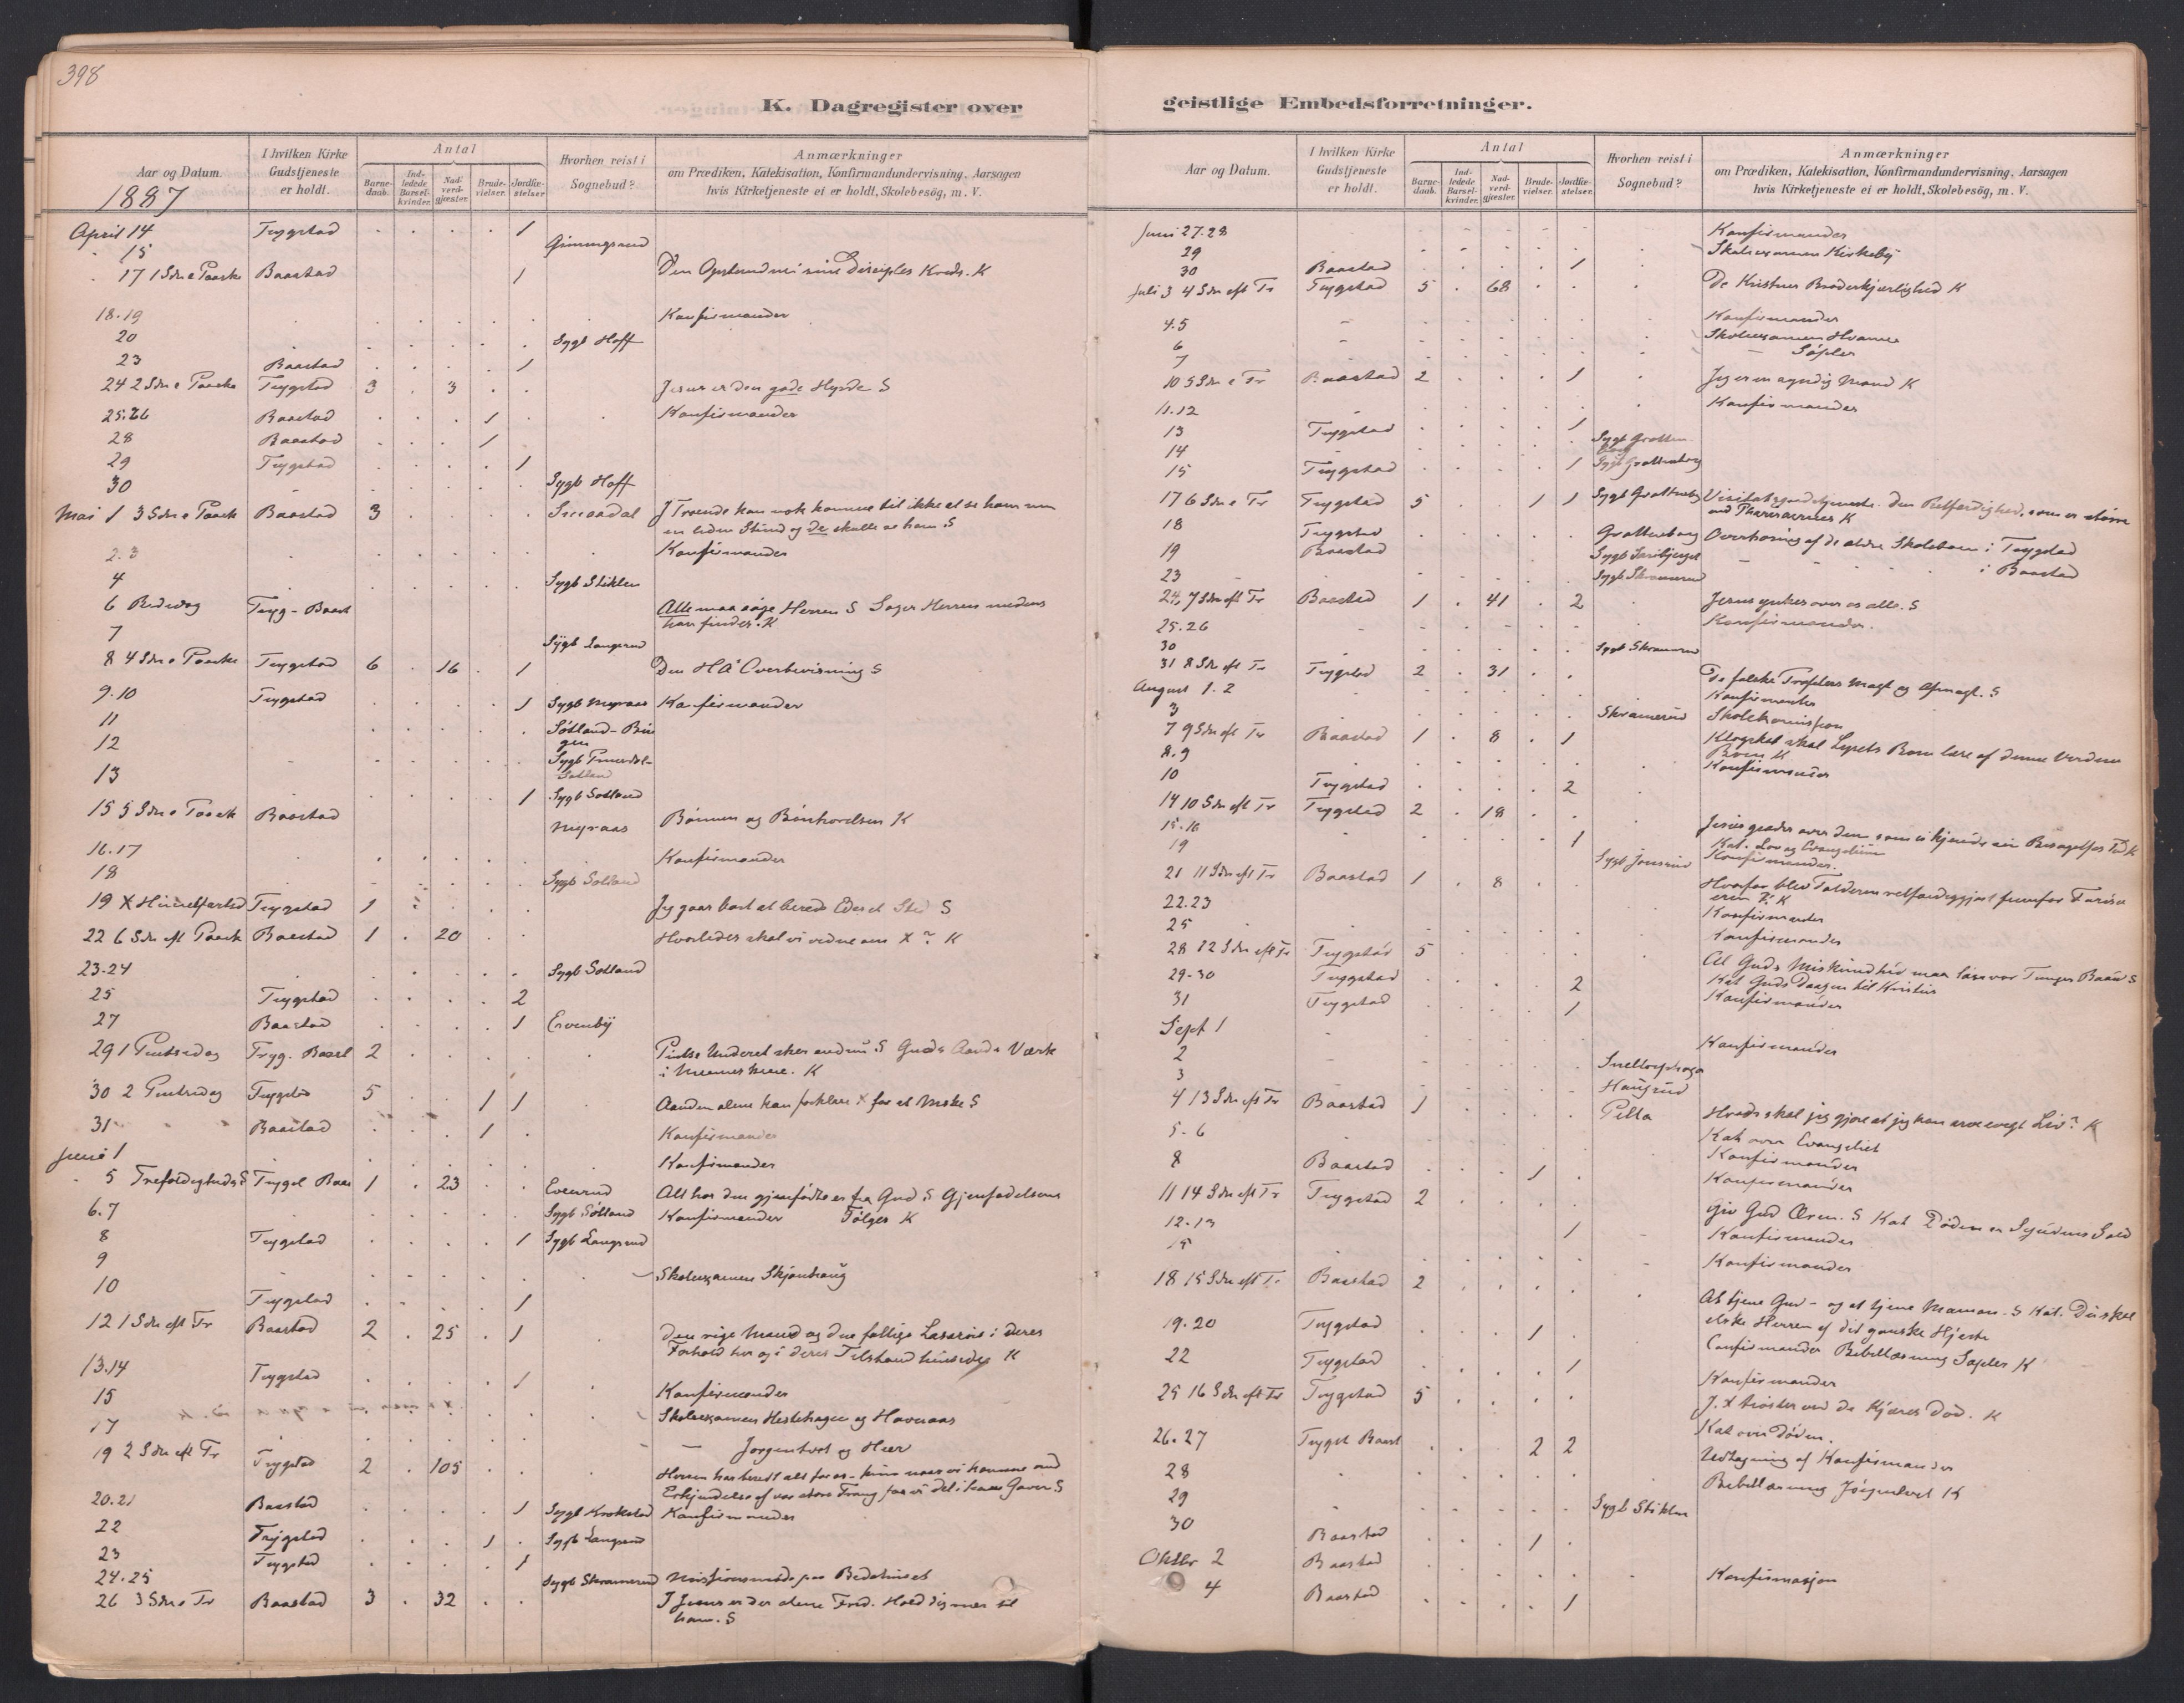 398
K. Dagregister over
Aar og Datum.
I hvilken Kirke Gudstjeneste er holdt.
Antal
Barnedaab.
Indledede Barselkvinder.
Nadverdgjæster.
Brudevielser.
Jordfæstelser.
Hvorhen reist i Sognebud?
Anmærkninger
om Prædiken, Katekisation, Konfirmandundervisning, Aarsagen
hvis Kirketjeneste ei er holdt, Skolebesög, m. V.
1887
April 14 Trygstad 1
15
17 1 Sdn e Paaske Baastad 1 Den Opstandne i sine Disciples Kreds. K
18.19 Konfirmander
20 Sygb Hoff
23 Baastad 1
24 2 Sdn e Paaske Trygstad 3 3 Jesus er den gode Hyrde S
25.26 Baastad 1 Konfirmander
28 Baastad 1
29 Trygstad 1
30 Sygb Hoff
Mai 1 3 Sdn e Paask Baastad 3 Smaadal I Troende kan nok komme til ikke at se ham um
en liden Stund og de skulle se ham S
2.3 Konfirmander
4 Sygb Stiklen
6 Bededag Tryg-Baast Alle maa søge Herren S Søger Herren medens
han findes. K
7 Sygb Langsrud
8 4 Sdn e Paaske Trygstad 6 16 1 Den HA Overbevisning S
9.10 Trygstad 1 Sygb Myraas Konfirmander
11 Sótland-
12 Sygb
13 1 Sygb Sotland
15 5 Sdn e Paask Baastad Myraas Bønnen og Bønhørelsen K
16.17 Konfirmander
18 Sygb Sotland
19 X Himmelfartsd Trygstad 1 Jeg gaar bort at berede Eder et Sted S
22 6 Sdn eft Paask Baastad 1 20 Hvorledes skal vi vidne om X? K
23-24 Sygb Sotland
25 Trygstad 2
27 Baastad 1
29 1 Pintsedag Tryg. Baast 2 Pintse Underet sker endnu S Guds Aands Værk
i Menneskene. K
30 2 Pintsedag Trygstad 5 1 1 Aanden alene kan forklare X for et Mske S
31 Baastad 1 Konfirmander
Juni 1 Konfirmander
5 Trefoldigheds S Trygst Baas 1 23 Alt hos den gjenfødte er fra Gud S Gjenfødelsens
6.7 Sygb Sótland Konfirmander Følger K
8 Trygstad 1 Sygb Langsrud
9 Skoleexamen Skjønhaug
10 Trygstad 1
12 1 Sdn eft Tr Baastad 2 25 1 Den rige Mand og den fattige Lasarus i deres
Forhold her og i deres Tilstand hinsides K
13.14 Trygstad 1
15 Konfirmander
17 Skoleexamen Hestehagen og Havnaas
Jørgentvet og Heer
19 2 Sdn eft Tr Trygstad 2 105 Herren har beredt alt for os - kun naar vi komme med
Erkjendelse af vor store Trang faar vi del i hans Gaver S
20.21 Baastad 1 Sygb Krokstad Konfirmander
22 Trygstad 1 Sygb Langsrud
23 Trygstad 1
24.25 Sygb Skramerud Missionsmøde paa Bedehuset
26 3 Sdn e Tr Baastad 3 32 I Jesus er der alene Fred. Hold dig nær til
ham. S
geistlige Embedsforretninger.
Aar og Datum.
I hvilken Kirke Gudstjeneste er holdt.
Antal
Barnedaab.
Indledede Barselkvinder.
Nadverdgjæster.
Brudevielser.
Jordfæstelser.
Hvorhen reist i Sognebud?
Anmærkninger
om Prædiken, Katekisation, Konfirmandundervisning, Aarsagen
hvis Kirketjeneste ei er holdt, Skolebesög, m. V.
Juni 27.28 Konfirmander
29 Skoleexamen Kirkeby
30 Baastad 1
Juli 3 4 Sdn eft Tr Trygstad 5 68 De Kristnes Broderkjærlighed K
4.5 Konfirmander
6 Skoleexamen
7
10 5 Sdn e Tr Baastad 2 1 Jeg er en syndig Mand K
11.12 Konfirmander
13 Trygstad 1
14 Sygb Grøttenborg
15 Trygstad 1 Sygb Grøttenborg
17 6 Sdn e Tr Trygstad 5 1 1 Sygb Grøttenborg Visitatsgudstjeneste. Den Retfærdighed, som er større
end Pharisæernes K
18 Trygstad Grøttenborg Overhøring af de ældre Skolebørn i Trygstad
19 Baastad i Baastad
23 Sygb Skramerud
24 7 Sdn eft Tr Baastad 1 41 2 Jesus ynkes over os alle. S
25.26 Konfirmander.
30 Sygb Skramerud
31 8 Sdn eft Tr Trygstad 2 31 De falske Profeters Magt og Afmagt. S
August 1.2 Konfirmander
3 Skramerud Skolekomission
7 9 Sdn eft Tr Baastad 1 8 1 Klogskab skal Lysets Børn lære af denne Verdens
Børn K
8.9 Konfirmander
10 Trygstad 2
14 10 Sdn eft Tr Trygstad 2 18 Jesus græder over dem som ei kjende sin Besøgelses Tid K
Kat. Lov og Evangelium
15.16 Konfirmander.
19 1 Sygb Jonsrud
21 11 Sdn eft Tr Baastad 1 8 Hvorfor blev Tolderen retfærdiggjort fremfor Farisæ
eren? K
22.23 Konfirmander
25 Konfirmander
28 12 Sdn eft Tr Trygstad 5 Al Guds Miskundhed maa løse vor Tunges Baand S
29-30 Trygstad 2
31 Trygstad 1 Konfirmander
Sept 1
2 Konfirmander
3
4 13 Sdn eft Tr Baastad 1 Hvad skal jeg gjøre at jeg kan arve evigt Liv? K
Kat over Evangeliet
5-6 Konfirmander
8 Baastad 1 Konfirmander
11 14 Sdn eft Tr Trygstad 2 Giv Gud Æren. S Kat Døden er Syndens Sold
12.13 1 Konfirmander
15 Konfirmander
18 15 Sdn eft Tr Baastad 2 At tjene Gud - og at tjene Mammon. S Kat. Du skal
elske Herren af dit ganske Hjerte
19.20 Trygstad 1 Confirmander Bibellæsning K
22 Trygstad 1 Konfirmander
25 16 Sdn eft Tr Trygstad 5 J. X trøster ved de Kjæres Død. K
Kat over Døden.
26.27 Trygst Baast 2 2 Udtagning af Konfirmander
28 Bibellæsning Jørgentvet K
29 Sygb Stiklen
30 Baastad 1
Oktbr 2 Baastad Konfirmasjon
4 Baastad 1